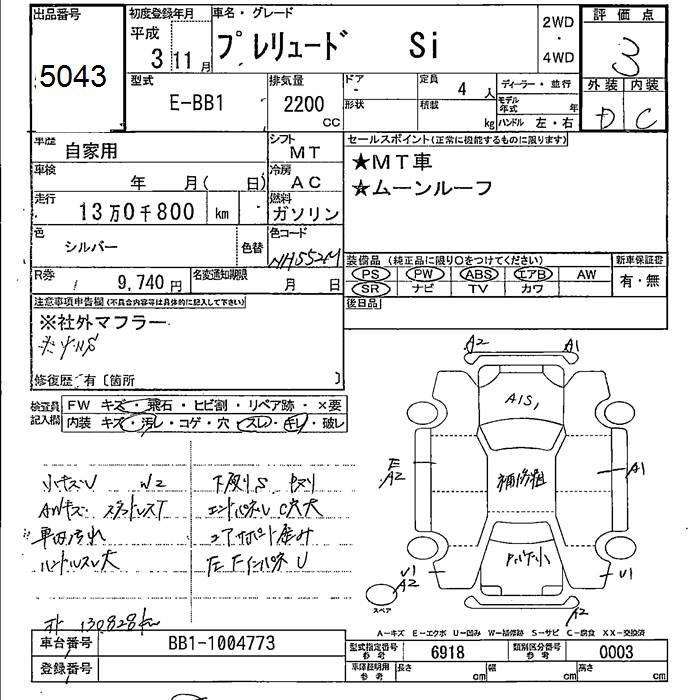 出品番号
5043
初度登録年月
平成
3 11 月
車名・グレード
プレリュード Si
2WD
・
4WD
評価点
3
外装 内装
D C
型式
E-BB1
排気量
2200
CC
ドア
-
形状
定員
4 人
積載
kg
ディーラー・並行
モデル年式 年
ハンドル 左・右
車歴
自家用
シフト
MT
車検
年 月( 日)
冷房
AC
走行
13万0千800 km
燃料
ガソリン
色
シルバー
色替
色コード
NH552M
R券
9,740 円
名変通知期限
月 日
セールスポイント(正常に機能するものに限ります)
★MT車
★ムーンルーフ
装備品 (純正品に限り○をつけてください)
PS PW ABS エアB AW
SR ナビ TV カワ
新車保証書
有・無
後日品
注意事項申告欄(不具合内容等は具体的に記入して下さい)
※社外マフラー
修復歴:有〔箇所 〕
検査員記入欄
FW キズ・飛石・ヒビ割・リペア跡・×要
内装 キズ・汚レ・コゲ・穴・スレ・キレ・破レ
小キズU W2
AWキズ
車内汚れ
ハンドルスレ大
下廻りS
130828km
A2 A1
A1S1
E
A2
補修粗
A1
U1
A2
スペア
U1
A2
A-キズ E-エクボ U-凹み W-補修跡 S-サビ C-腐食 XX-交換済
車台番号
BB1-1004773
登録番号
型式指定番号
参考
6918
類別区分番号
参考
0003
車庫証明用
参考
長さ cm
幅 cm
高さ cm